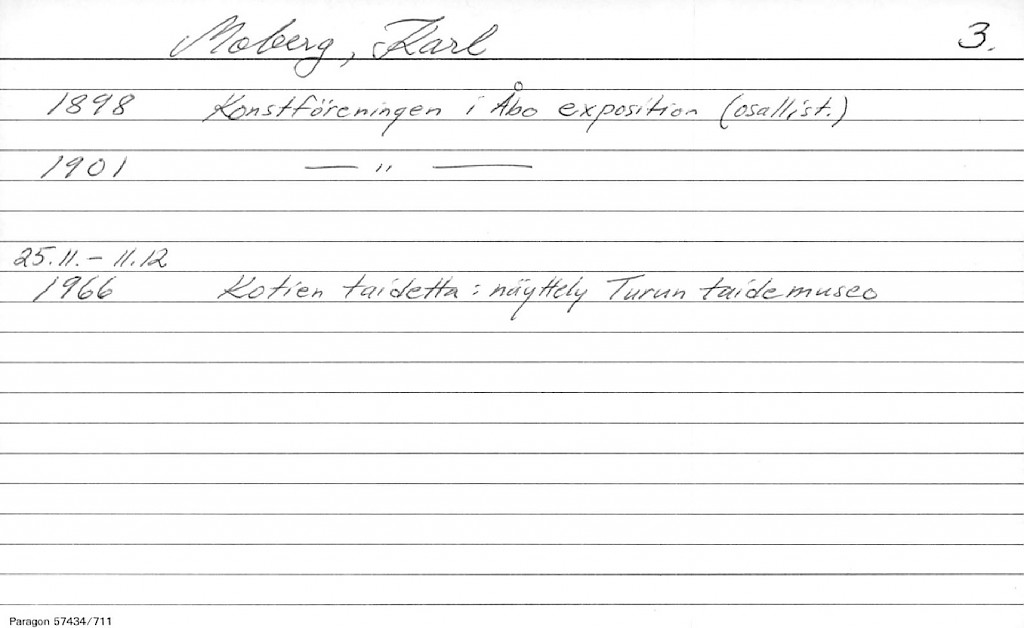 Moberg, Karl 3.
1898 Konstföreningen i Åbo exposition (osallist.)
1901 — " —
25.11.– 11.12
1966 Kotien taidetta : näyttely Turun taidemuseo
Paragon 57434/711